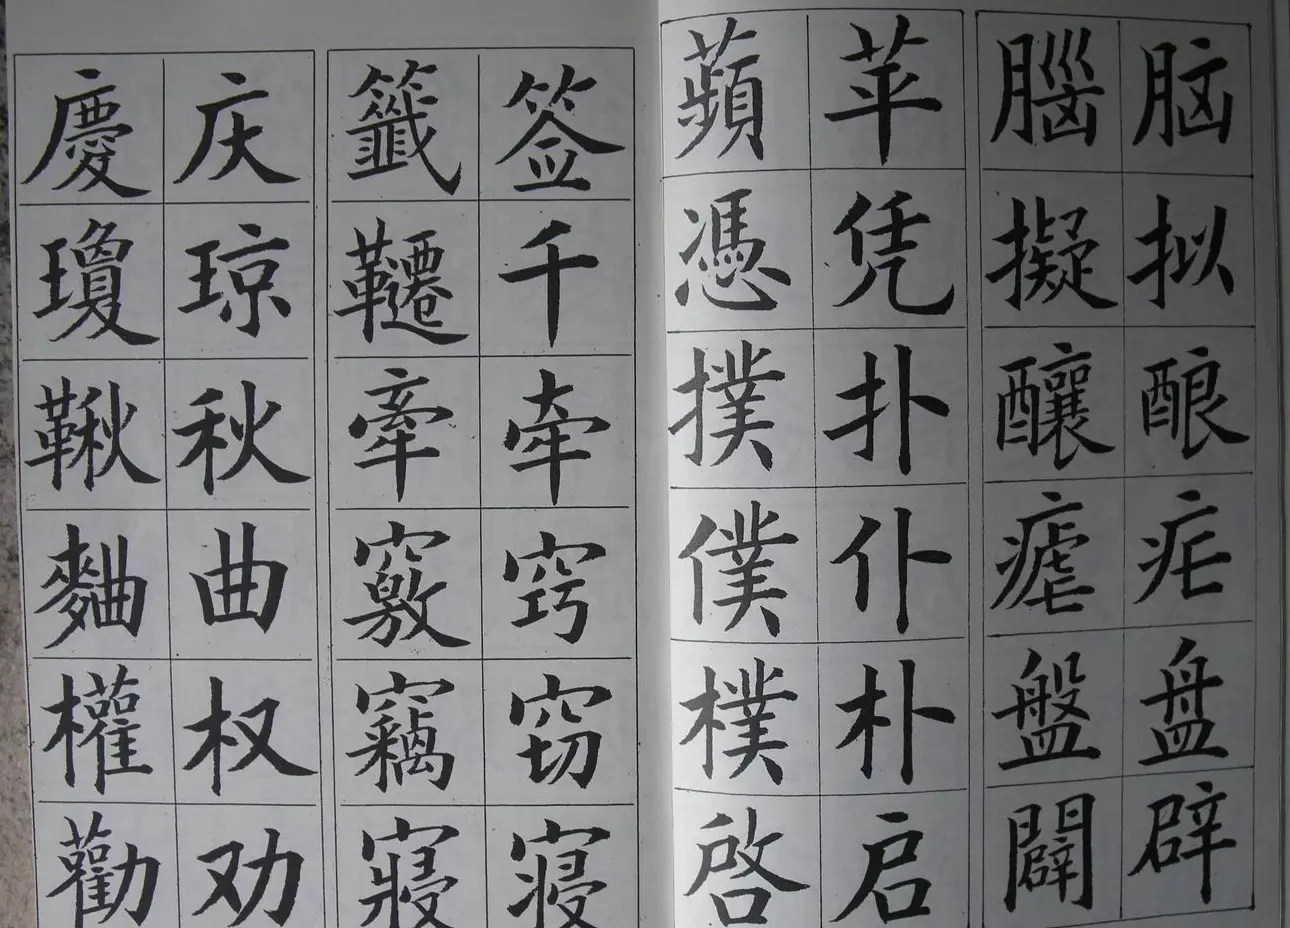 脑拟酿疟盘辟
腦擬釀瘧盤闢
苹凭扑仆朴启
蘋憑撲僕樸啓
签千牵窍窃寝
籤韆牽竅竊寢
庆琼秋曲权劝
慶瓊鞦麯權勸